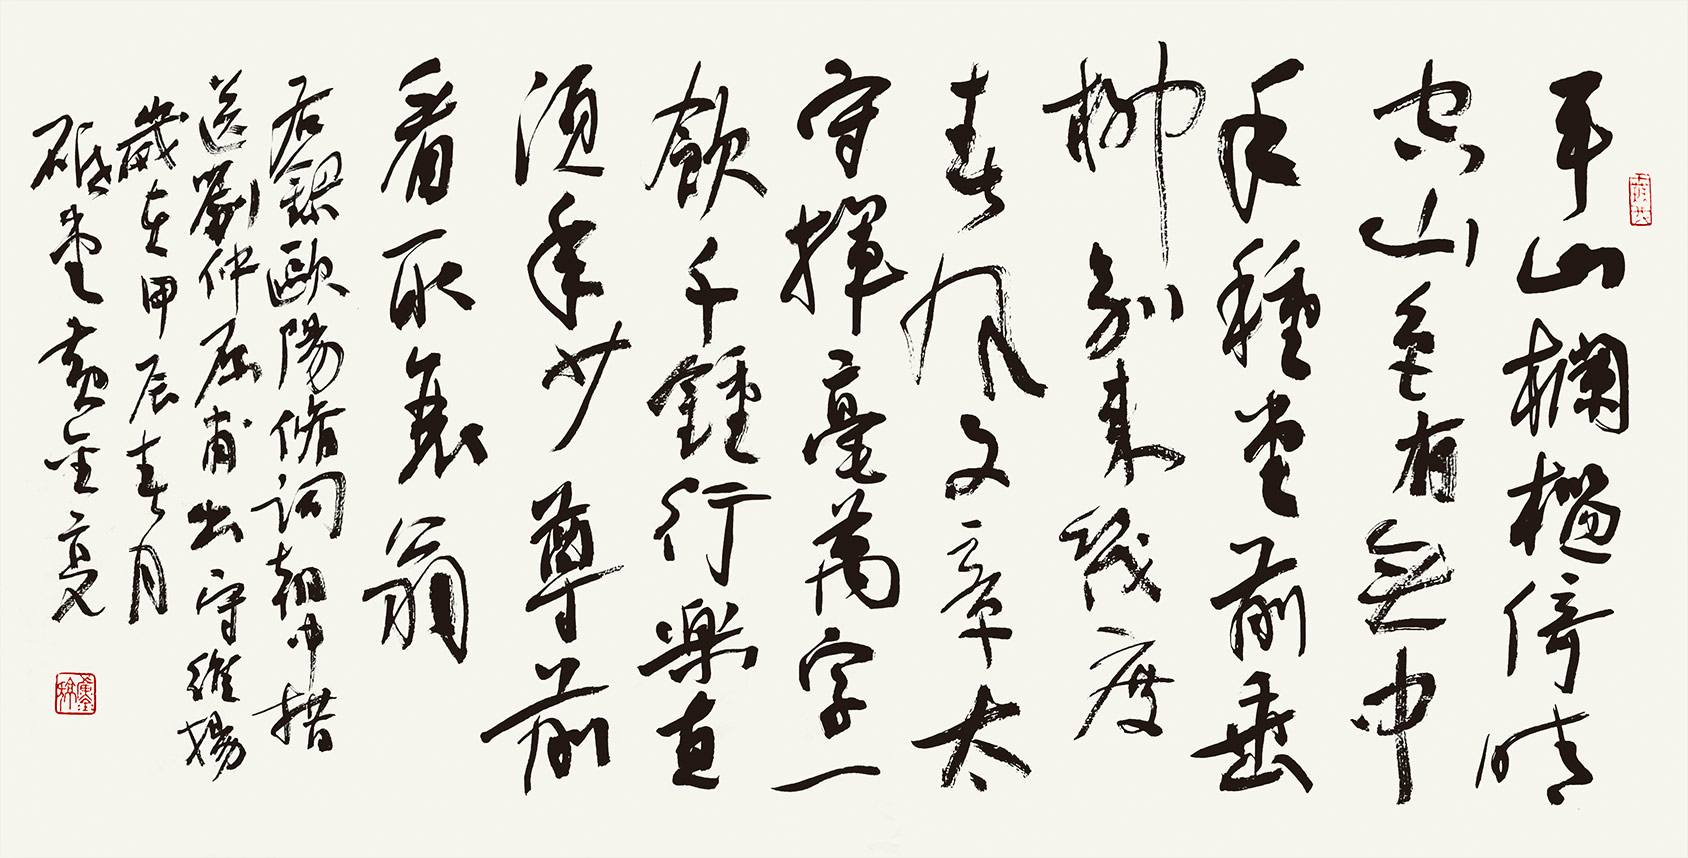 平山欄檻倚晴
空山色有無中
手種堂前垂
柳別來幾度
春風文章太
守揮毫萬字一
飲千鍾行樂直
須年少尊前
看取衰翁
右錄歐陽脩詞朝中措
送劉仲原甫出守維揚
歲在甲辰春月
砥堂黃金亮